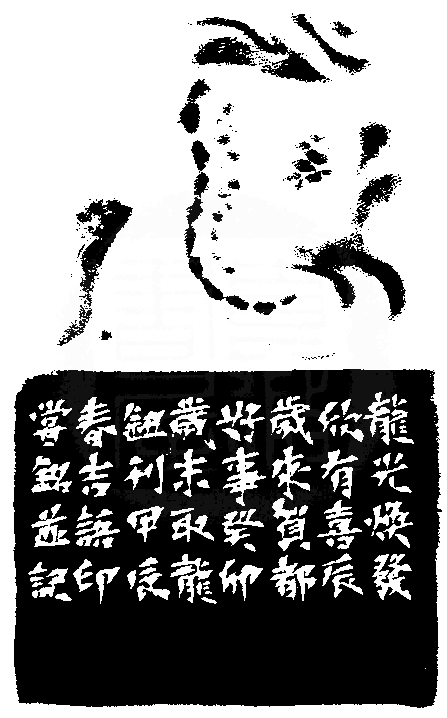 龍光煥發
欣有喜辰
歲來賀都
好事癸卯
歲末取龍
鈕利甲辰
春吉語印
嘗銘並記